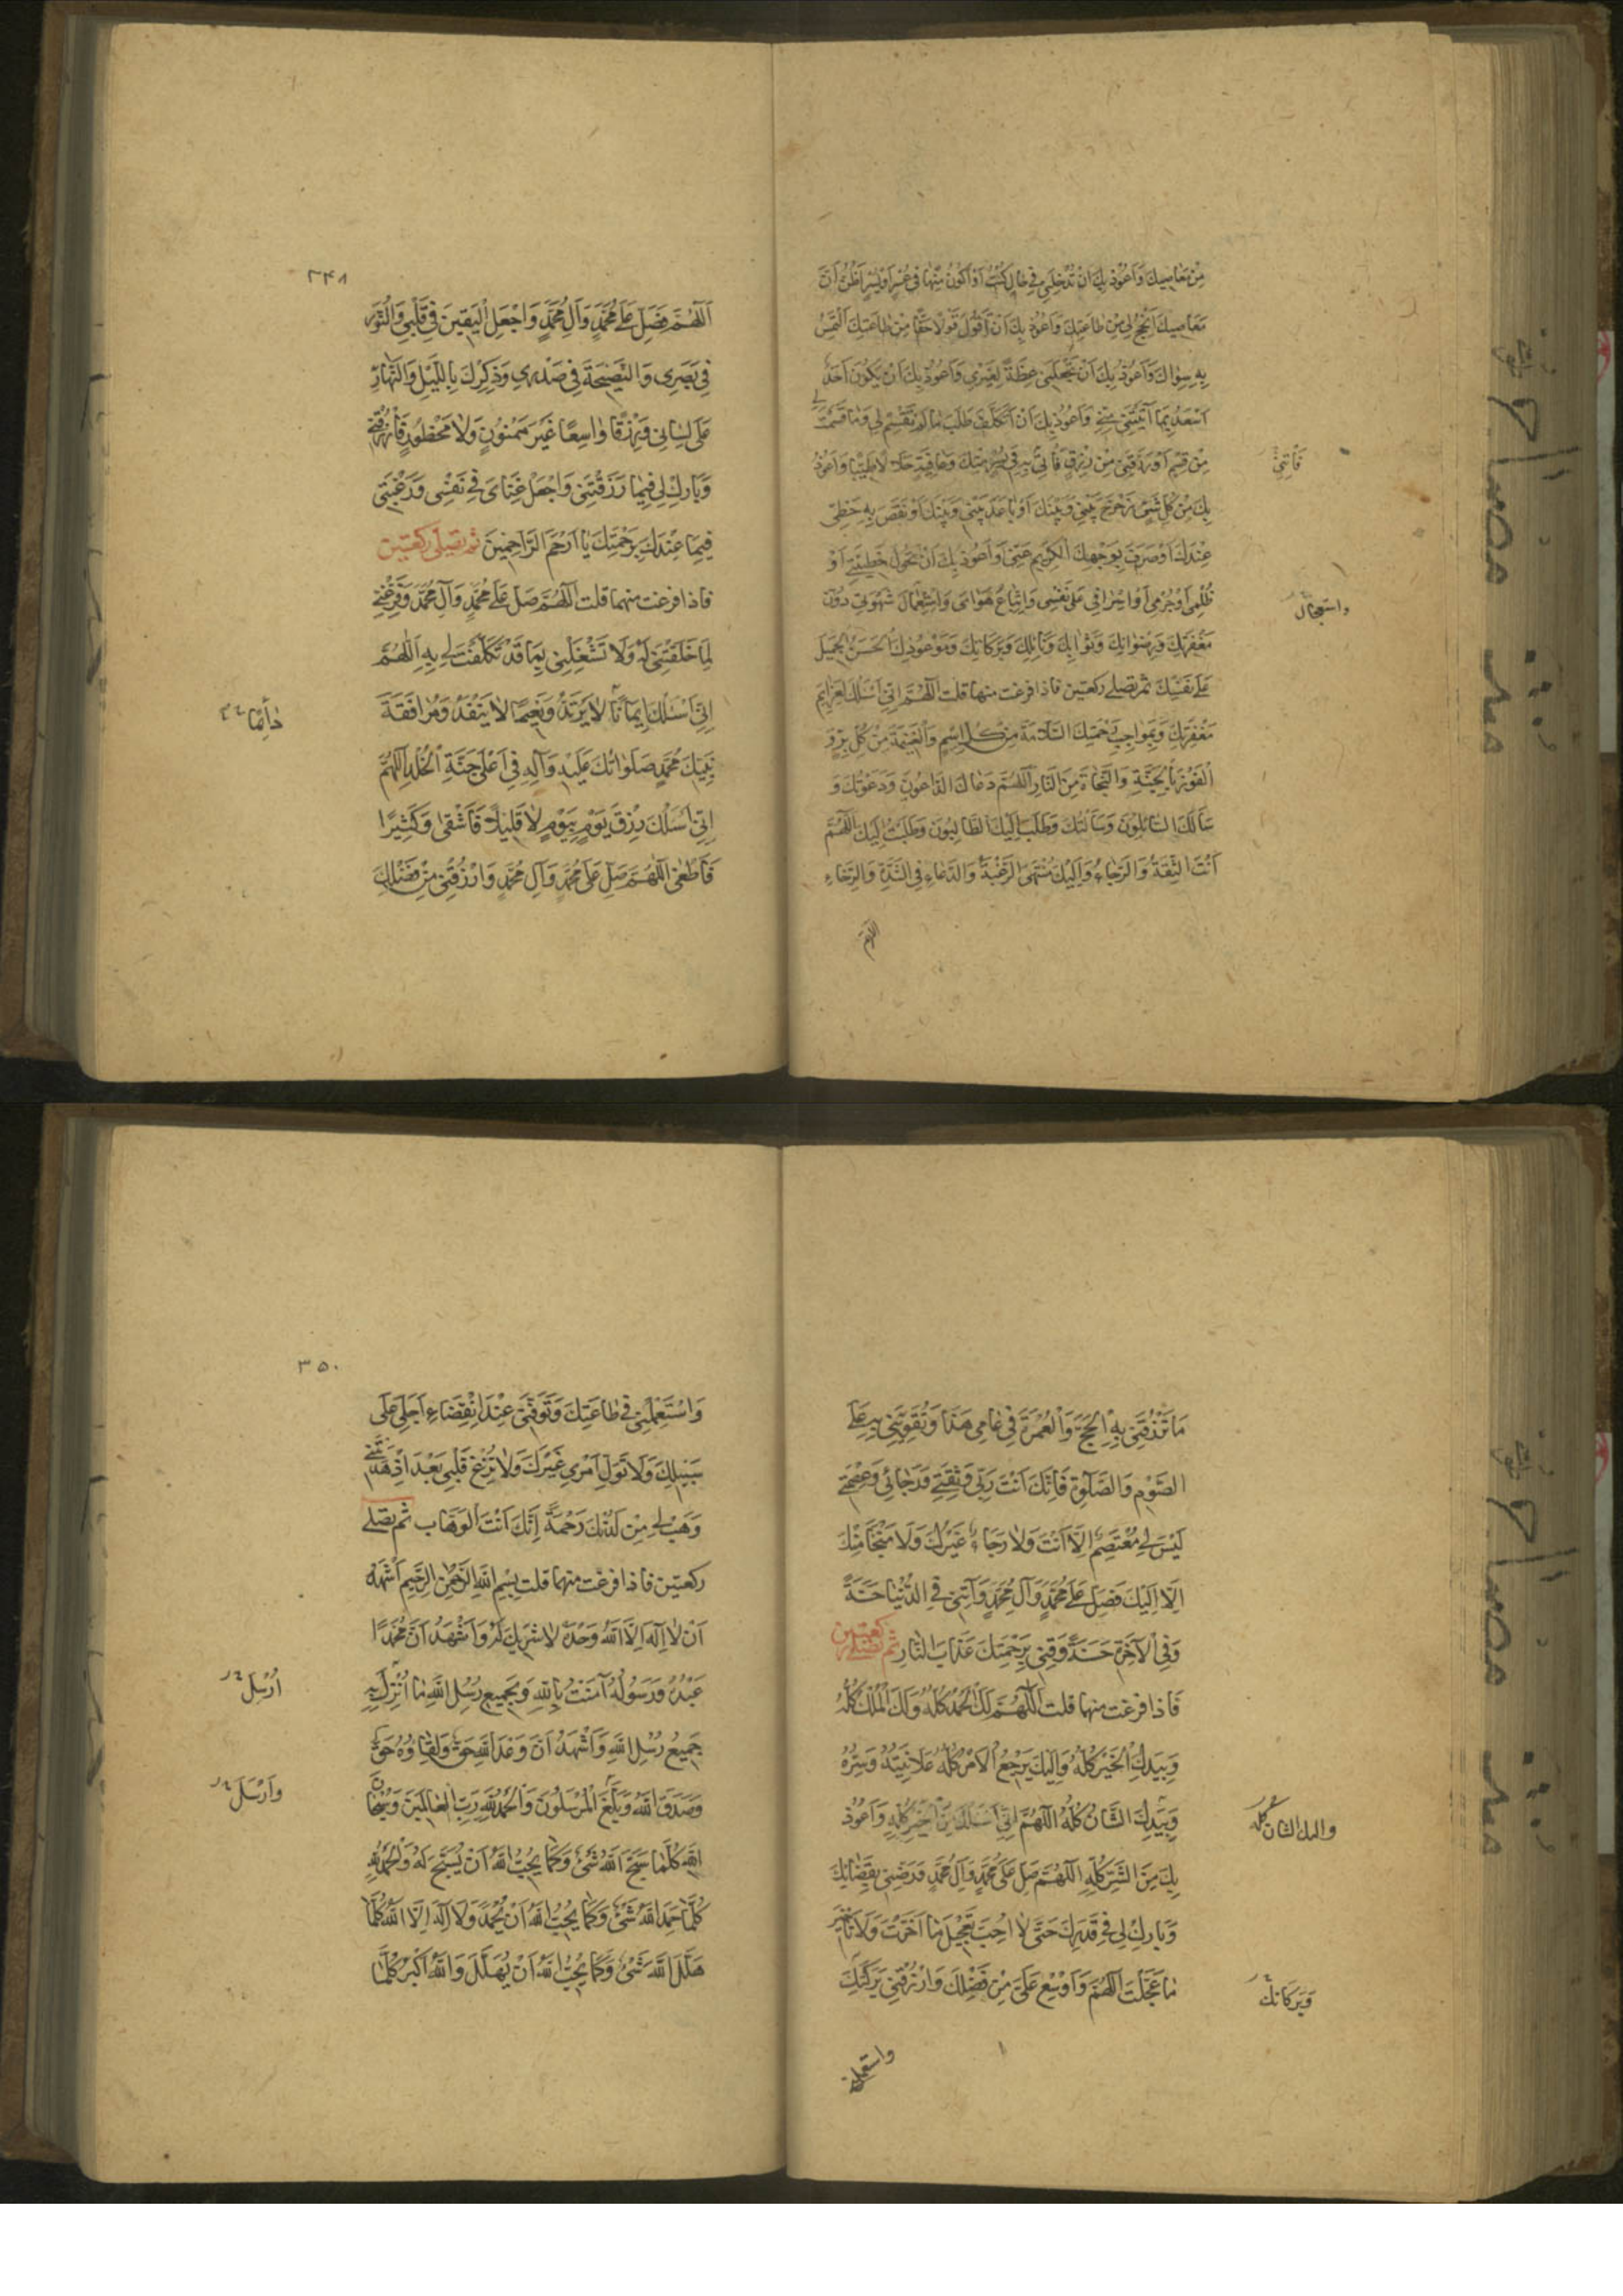 مِنْ مَعَاصِيكَ وَاَعُوذُ بِكَ اَنْ تُدْخِلَنِي فِي حَالٍ كُنْتُ اَوْ اَكُونُ مِنْهَا فِي عُسْرٍ اَوْ يُسْرٍ اَظُنُّ اَنَّ
مَعَاصِيكَ اَنْجَحُ لِي مِنْ طَاعَتِكَ وَاَعُوذُ بِكَ اَنْ اَقُولَ قَوْلًا حَقًّا مِنْ طَاعَتِكَ اَلْتَمِسُ
بِهِ سِوَاكَ وَاَعُوذُ بِكَ اَنْ تَجْعَلَنِي عِظَةً لِغَيْرِي وَاَعُوذُ بِكَ اَنْ يَكُونَ اَحَدٌ
اَسْعَدُ بِمَا آتَيْتَنِي مِنِّي وَاَعُوذُ بِكَ اَنْ اَتَكَلَّفَ طَلَبَ مَا لَمْ تَقْسِمْ لِي وَمَا قَسَمْتَ لِي
مِنْ قِسْمٍ اَوْ رَزَقْتَنِي مِنْ رِزْقٍ فَأْتِنِي بِهِ فِي يُسْرٍ مِنْكَ وَعَافِيَةٍ حَلَالًا طَيِّبًا وَاَعُوذُ
فَأْتِنِي
بِكَ مِنْ كُلِّ شَيْءٍ زَحْزَحَ بَيْنِي وَبَيْنَكَ اَوْ بَاعَدَ بَيْنِي وَبَيْنَكَ اَوْ نَقَصَ بِهِ حَظِّي
عِنْدَكَ اَوْ صَرَفَ بِوَجْهِكَ الْكَرِيمِ عَنِّي وَاَعُوذُ بِكَ اَنْ تَحُولَ خَطِيئَتِي اَوْ
ظُلْمِي اَوْ جُرْمِي اَوْ اِسْرَافِي عَلَى نَفْسِي وَاتِّبَاعُ هَوَايَ وَاسْتِعْمَالُ شَهْوَتِي دُونَ
واستعجال
مَغْفِرَتِكَ وَرِضْوَانِكَ وَثَوَابِكَ وَنَائِلِكَ وَبَرَكَاتِكَ وَمَوْعُودِكَ الْحَسَنِ الْجَمِيلِ
عَلَى نَفْسِكَ ثم تصلى ركعتين فاذا فرغت منهما قلت اَللّٰهُمَّ اِنِّي اَسْئَلُكَ بِعَزَائِمِ
مَغْفِرَتِكَ وَبِمَوَاجِبِ رَحْمَتِكَ السَّلَامَةَ مِنْ كُلِّ اِثْمٍ وَالْغَنِيمَةَ مِنْ كُلِّ بِرٍّ وَ
الْفَوْزَ بِالْجَنَّةِ وَالنَّجَاةَ مِنَ النَّارِ اَللّٰهُمَّ دَعَاكَ الدَّاعُونَ وَدَعَوْتُكَ وَ
سَأَلَكَ السَّائِلُونَ وَسَأَلْتُكَ وَطَلَبَ اِلَيْكَ الطَّالِبُونَ وَطَلَبْتُ اِلَيْكَ اَللّٰهُمَّ
اَنْتَ الثِّقَةُ وَالرَّجَاءُ وَاِلَيْكَ مُنْتَهَى الرَّغْبَةِ وَالدُّعَاءِ فِي الشِّدَّةِ وَالرَّخَاءِ
اللهم
٣٤٨
اَللّٰهُمَّ فَصَلِّ عَلَى مُحَمَّدٍ وَآلِ مُحَمَّدٍ وَاجْعَلِ الْيَقِينَ فِي قَلْبِي وَالنُّورَ
فِي بَصَرِي وَالنَّصِيحَةَ فِي صَدْرِي وَذِكْرَكَ بِاللَّيْلِ وَالنَّهَارِ
عَلَى لِسَانِي وَرِزْقًا وَاسِعًا غَيْرَ مَمْنُونٍ وَلَا مَحْظُورٍ فَارْزُقْنِي
وَبَارِكْ لِي فِيمَا رَزَقْتَنِي وَاجْعَلْ غِنَايَ فِي نَفْسِي وَرَغْبَتِي
فِيمَا عِنْدَكَ بِرَحْمَتِكَ يَا اَرْحَمَ الرَّاحِمِينَ ثم تصلى ركعتين
فاذا فرغت منهما قلت اَللّٰهُمَّ صَلِّ عَلَى مُحَمَّدٍ وَآلِ مُحَمَّدٍ وَفَرِّغْنِي
لِمَا خَلَقْتَنِي لَهُ وَلَا تَشْغَلْنِي بِمَا قَدْ تَكَلَّفْتَ لِي بِهِ اَللّٰهُمَّ
اِنِّي اَسْئَلُكَ اِيمَانًا لَا يَرْتَدُّ وَنَعِيمًا لَا يَنْفَدُ وَمُرَافَقَةَ
دَائِمًا
نَبِيِّكَ مُحَمَّدٍ صَلَوَاتُكَ عَلَيْهِ وَآلِهِ فِي اَعْلَى جَنَّةِ الْخُلْدِ اَللّٰهُمَّ
اِنِّي اَسْئَلُكَ رِزْقَ يَوْمٍ بِيَوْمٍ لَا قَلِيلًا فَاَشْقَى وَكَثِيرًا
فَاَطْغَى اَللّٰهُمَّ صَلِّ عَلَى مُحَمَّدٍ وَآلِ مُحَمَّدٍ وَارْزُقْنِي مِنْ فَضْلِكَ
مَا تَرْزُقُنِي بِهِ الْحَجَّ وَالْعُمْرَةَ فِي عَامِي هَذَا وَتُقَوِّيَنِي بِهِ عَلَى
الصَّوْمِ وَالصَّلٰوةِ فَاِنَّكَ اَنْتَ رَبِّي وَثِقَتِي وَرَجَائِي وَعِصْمَتِي
لَيْسَ لِي مُعْتَصَمٌ اِلَّا اَنْتَ وَلَا رَجَاءٌ غَيْرُكَ وَلَا مَنْجَا مِنْكَ
اِلَّا اِلَيْكَ فَصَلِّ عَلَى مُحَمَّدٍ وَآلِ مُحَمَّدٍ وَآتِنِي فِي الدُّنْيَا حَسَنَةً
وَفِي الْآخِرَةِ حَسَنَةً وَقِنِي بِرَحْمَتِكَ عَذَابَ النَّارِ ثم تصلى ركعتين
فَاذا فرغت منهما قلت اَللّٰهُمَّ لَكَ الْحَمْدُ كُلُّهُ وَلَكَ الْمُلْكُ كُلُّهُ
وَبِيَدِكَ الْخَيْرُ كُلُّهُ وَاِلَيْكَ يَرْجِعُ الْاَمْرُ كُلُّهُ عَلَانِيَتُهُ وَسِرُّهُ
وَبِيَدِكَ الشَّانُ كُلُّهُ اَللّٰهُمَّ اِنِّي اَسْئَلُكَ مِنَ الْخَيْرِ كُلِّهِ وَاَعُوذُ
واليك الشان كله
بِكَ مِنَ الشَّرِّ كُلِّهِ اَللّٰهُمَّ صَلِّ عَلَى مُحَمَّدٍ وَآلِ مُحَمَّدٍ وَرَضِّنِي بِقَضَائِكَ
وَبَارِكْ لِي فِي قَدَرِكَ حَتَّى لَا اُحِبَّ تَعْجِيلَ مَا اَخَّرْتَ وَلَا تَأْخِيرَ
مَا عَجَّلْتَ اَللّٰهُمَّ وَاَوْسِعْ عَلَيَّ مِنْ فَضْلِكَ وَارْزُقْنِي بَرَكَتَكَ
وَبَرَكَاتِكَ
واستعملني
٣٥٠
وَاسْتَعْمِلْنِي فِي طَاعَتِكَ وَتَوَفَّنِي عِنْدَ انْقِضَاءِ اَجَلِي عَلَى
سَبِيلِكَ وَلَا تُوَلِّ اَمْرِي غَيْرَكَ وَلَا تُزِغْ قَلْبِي بَعْدَ اِذْ هَدَيْتَنِي
وَهَبْ لِي مِنْ لَدُنْكَ رَحْمَةً اِنَّكَ اَنْتَ الْوَهَّاب ثم تصلى
ركعتين فاذا فرغت منهما قلت بِسْمِ اللّٰهِ الرَّحْمٰنِ الرَّحِيمِ اَشْهَدُ
اَنْ لَا اِلٰهَ اِلَّا اللّٰهُ وَحْدَهُ لَا شَرِيكَ لَهُ وَاَشْهَدُ اَنَّ مُحَمَّدًا
عَبْدُهُ وَرَسُولُهُ آمَنْتُ بِاللّٰهِ وَبِجَمِيعِ رُسُلِ اللّٰهِ مَا اُنْزِلَ بِهِ
اُرْسِلَ
جَمِيعُ رُسُلِ اللّٰهِ وَاَشْهَدُ اَنَّ وَعْدَ اللّٰهِ حَقٌّ وَلِقَاؤُهُ حَقٌّ
وَصَدَقَ اللّٰهُ وَبَلَّغَ الْمُرْسَلُونَ وَالْحَمْدُ لِلّٰهِ رَبِّ الْعَالَمِينَ وَسُبْحَانَ
وَاَرْسَلَ
اللّٰهِ كُلَّمَا سَبَّحَ اللّٰهَ شَيْءٌ وَكَمَا يُحِبُّ اللّٰهُ اَنْ يُسَبَّحَ لَهُ وَالْحَمْدُ لِلّٰهِ
كُلَّمَا حَمِدَ اللّٰهَ شَيْءٌ وَكَمَا يُحِبُّ اللّٰهُ اَنْ يُحْمَدَ وَلَا اِلٰهَ اِلَّا اللّٰهُ كُلَّمَا
هَلَّلَ اللّٰهَ شَيْءٌ وَكَمَا يُحِبُّ اللّٰهُ اَنْ يُهَلَّلَ وَاللّٰهُ اَكْبَرُ كُلَّمَا